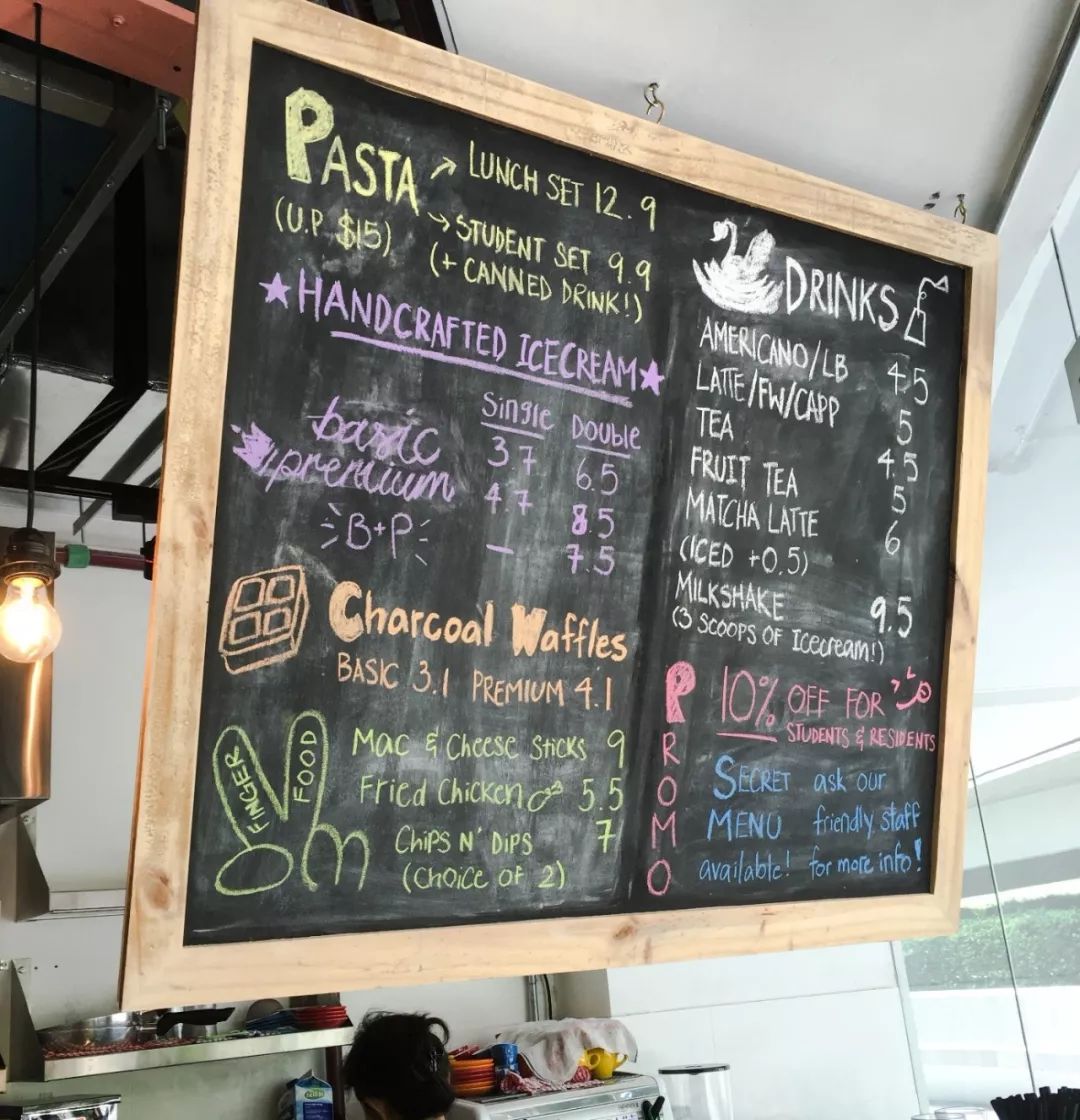 PASTA → LUNCH SET 12.9
(U.P $15) → STUDENT SET 9.9
(+ CANNED DRINK!)
★ HANDCRAFTED ICECREAM ★
Single Double
basic 3.7 6.5
premium 4.7 8.5
B+P - 7.5
Charcoal Waffles
BASIC 3.1 PREMIUM 4.1
FINGER FOOD
Mac & Cheese Sticks 9
Fried Chicken 5.5
CHIPS N' DIPS 7
(Choice of 2)
DRINKS
AMERICANO/LB 4.5
LATTE/FW/CAPP 5
TEA 4.5
FRUIT TEA 5
MATCHA LATTE 6
(ICED +0.5)
MILKSHAKE 9.5
(3 SCOOPS OF Icecream!)
PROMO
10% OFF FOR
STUDENTS & RESIDENTS
SECRET ask our
MENU friendly staff
available! for more info!